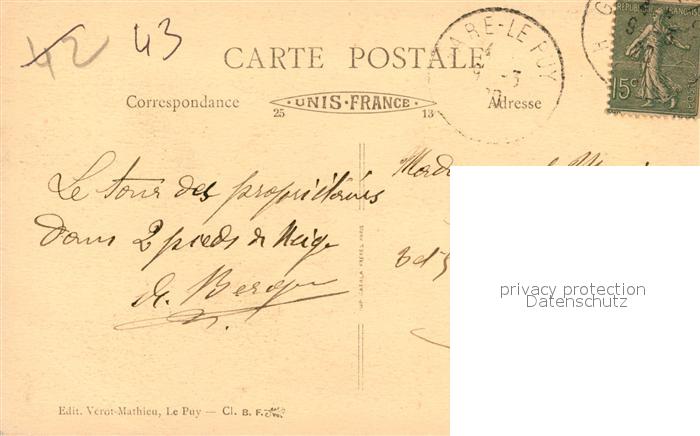 42 43
CARTE POSTALE
Correspondance
UNIS-FRANCE
25 13
Adresse
GARE-LE PUY
REPUBLIQUE FRANÇAISE
15c
Le tour des propriétaires
dans 2 pieds de Neige
privacy protection
Datenschutz
Edit. Vérot-Mathieu, Le Puy — Cl. B. F.